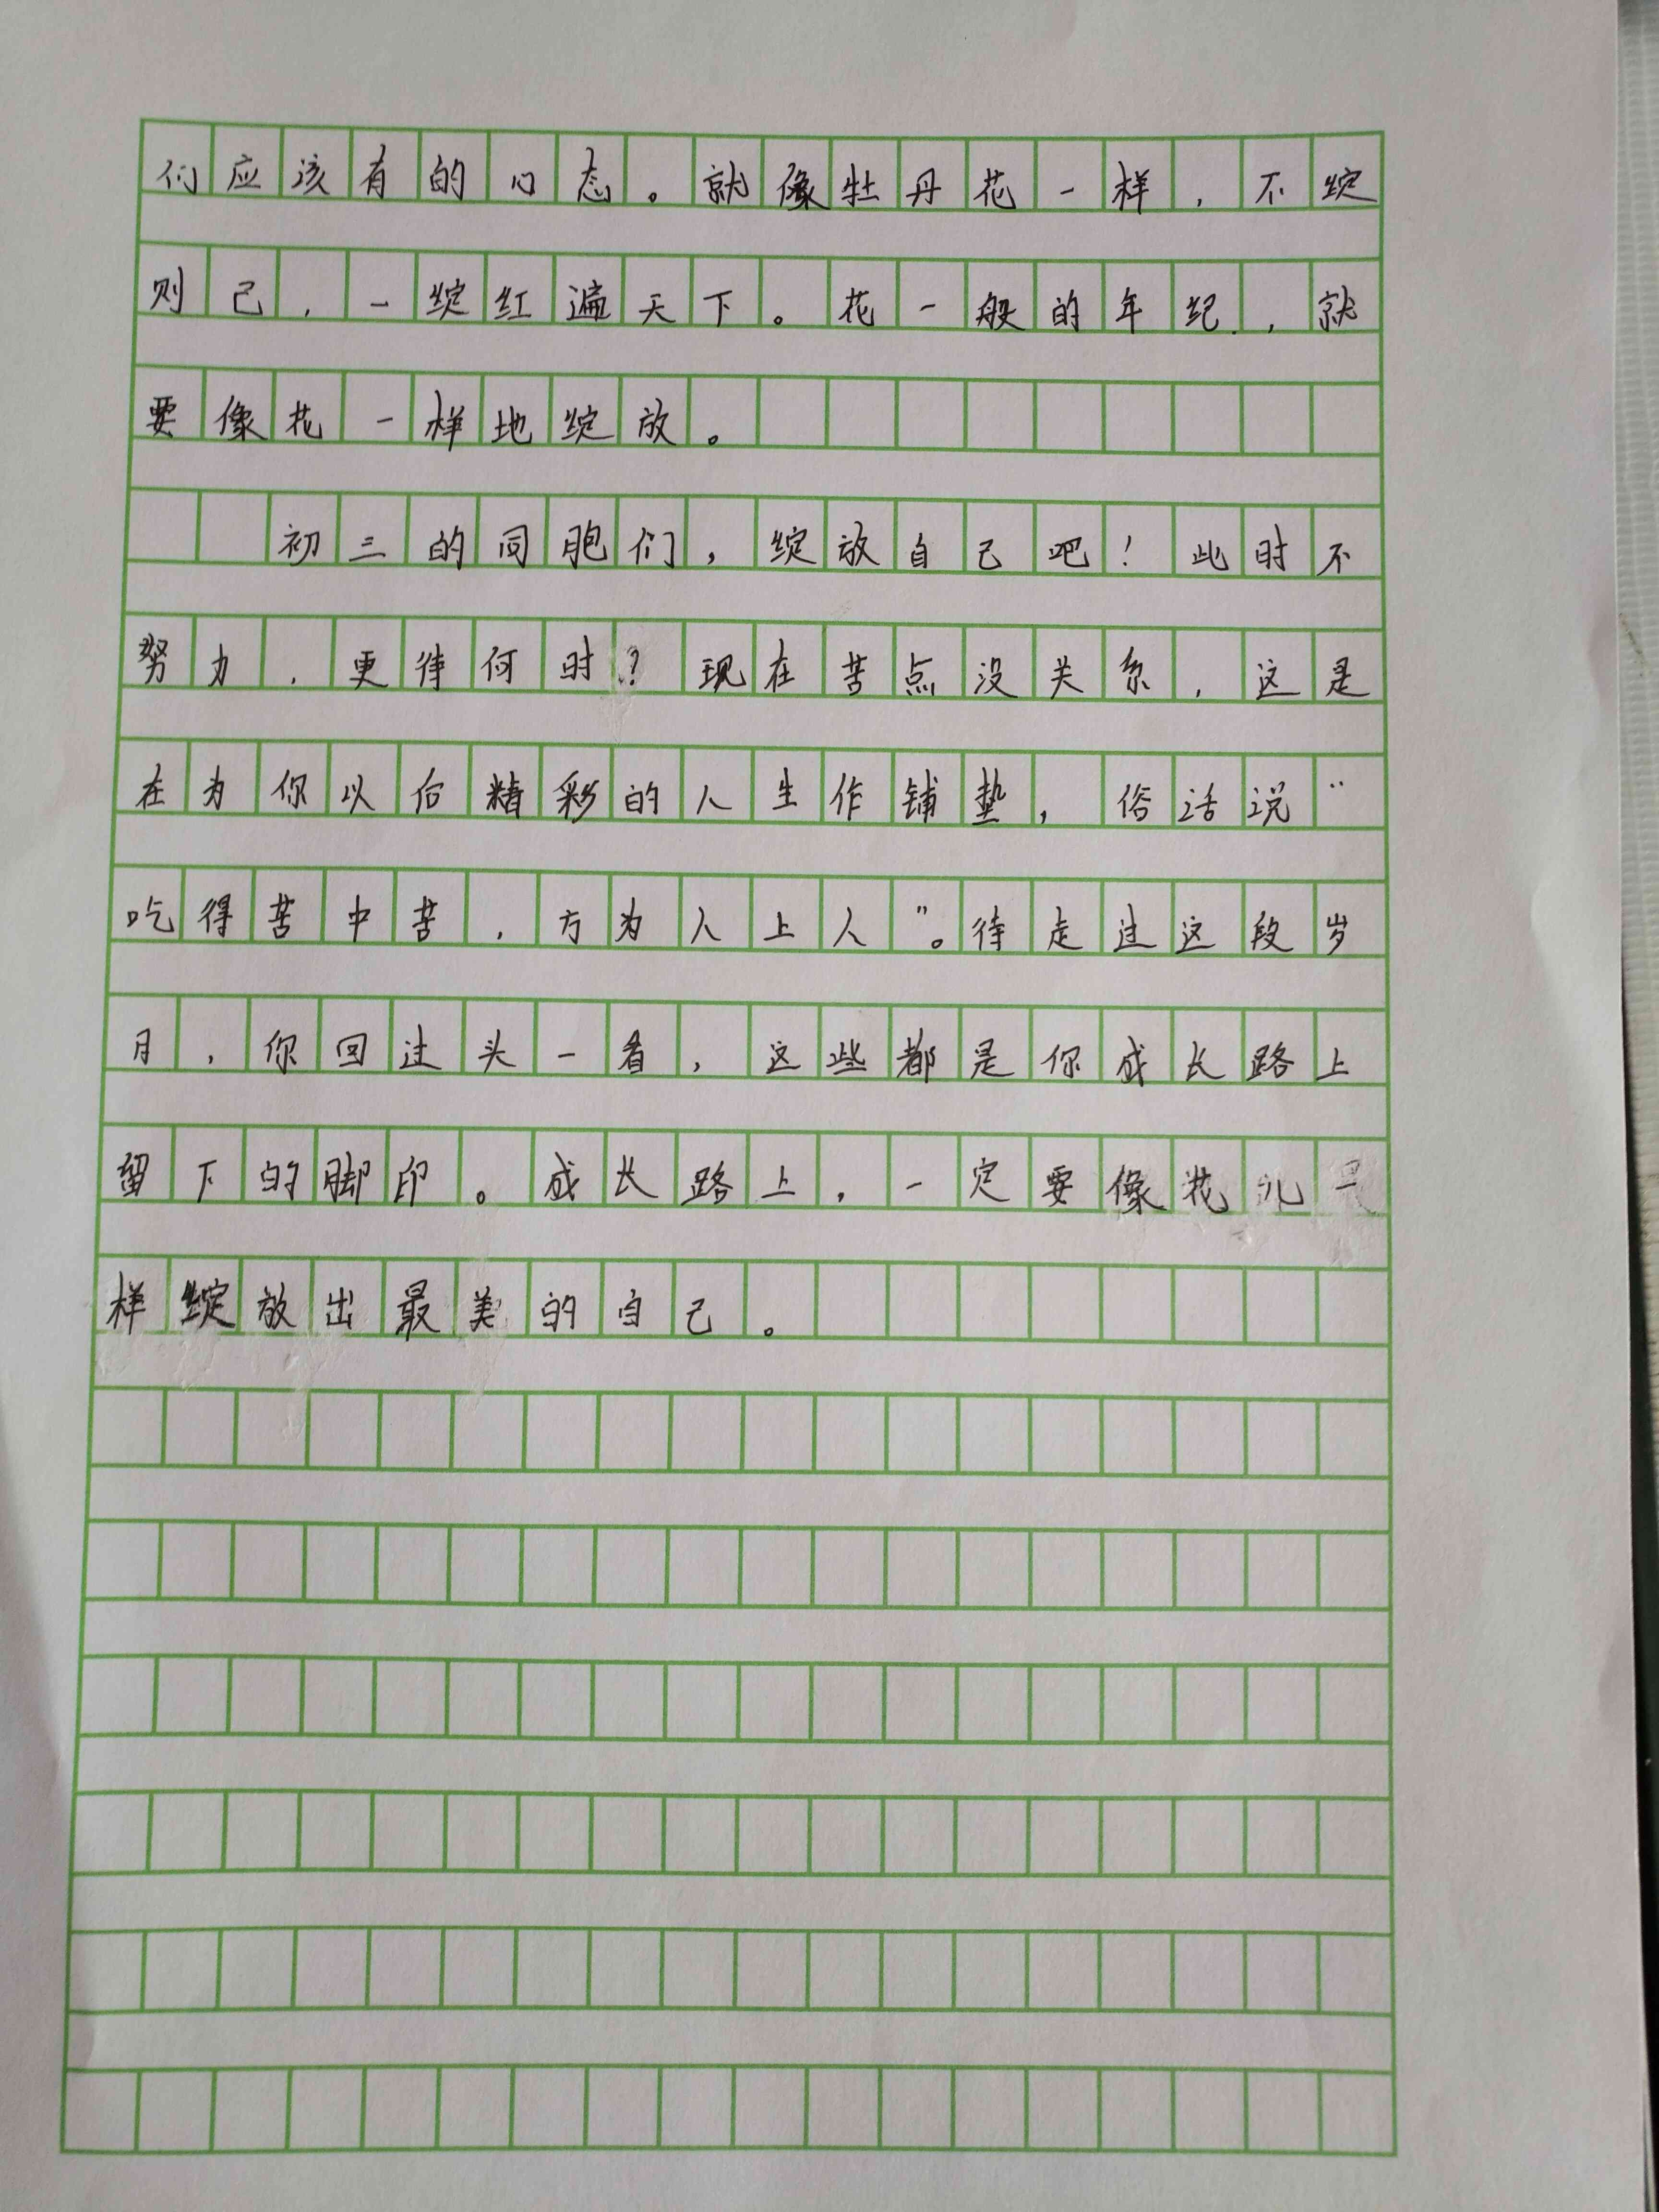 们应该有的心态。就像牡丹花一样，不绽
则已，一绽红遍天下。花一般的年纪，就
要像花一样地绽放。
初三的同胞们，绽放自己吧！此时不
努力，更待何时？现在苦点没关系，这是
在为你以后精彩的人生作铺垫，俗话说“
吃得苦中苦，方为人上人”。待走过这段岁
月，你回过头一看，这些都是你成长路上
留下的脚印。成长路上，一定要像花儿一
样绽放出最美的自己。